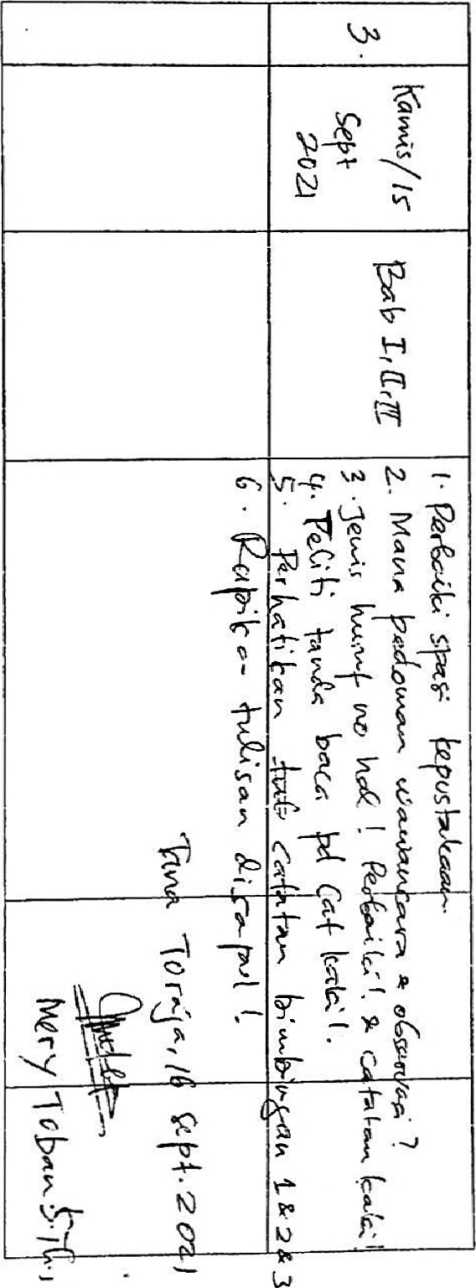 3.
Kamis/15
Sept
2021
Bab I, II, III
1. Perbaiki spasi kepustakaan.
2. Mana pedoman wawancara & observasi?
3. Jenis huruf no hal! Perbaiki! & catatan kaki!
4. Teliti tanda baca pd cat kaki!.
5. Perhatikan catatan bimbingan 1 & 2 & 3
6. Rapika- tulisan
Tana Toraja, 16 Sept. 2021
Mery Toban S.Th.,